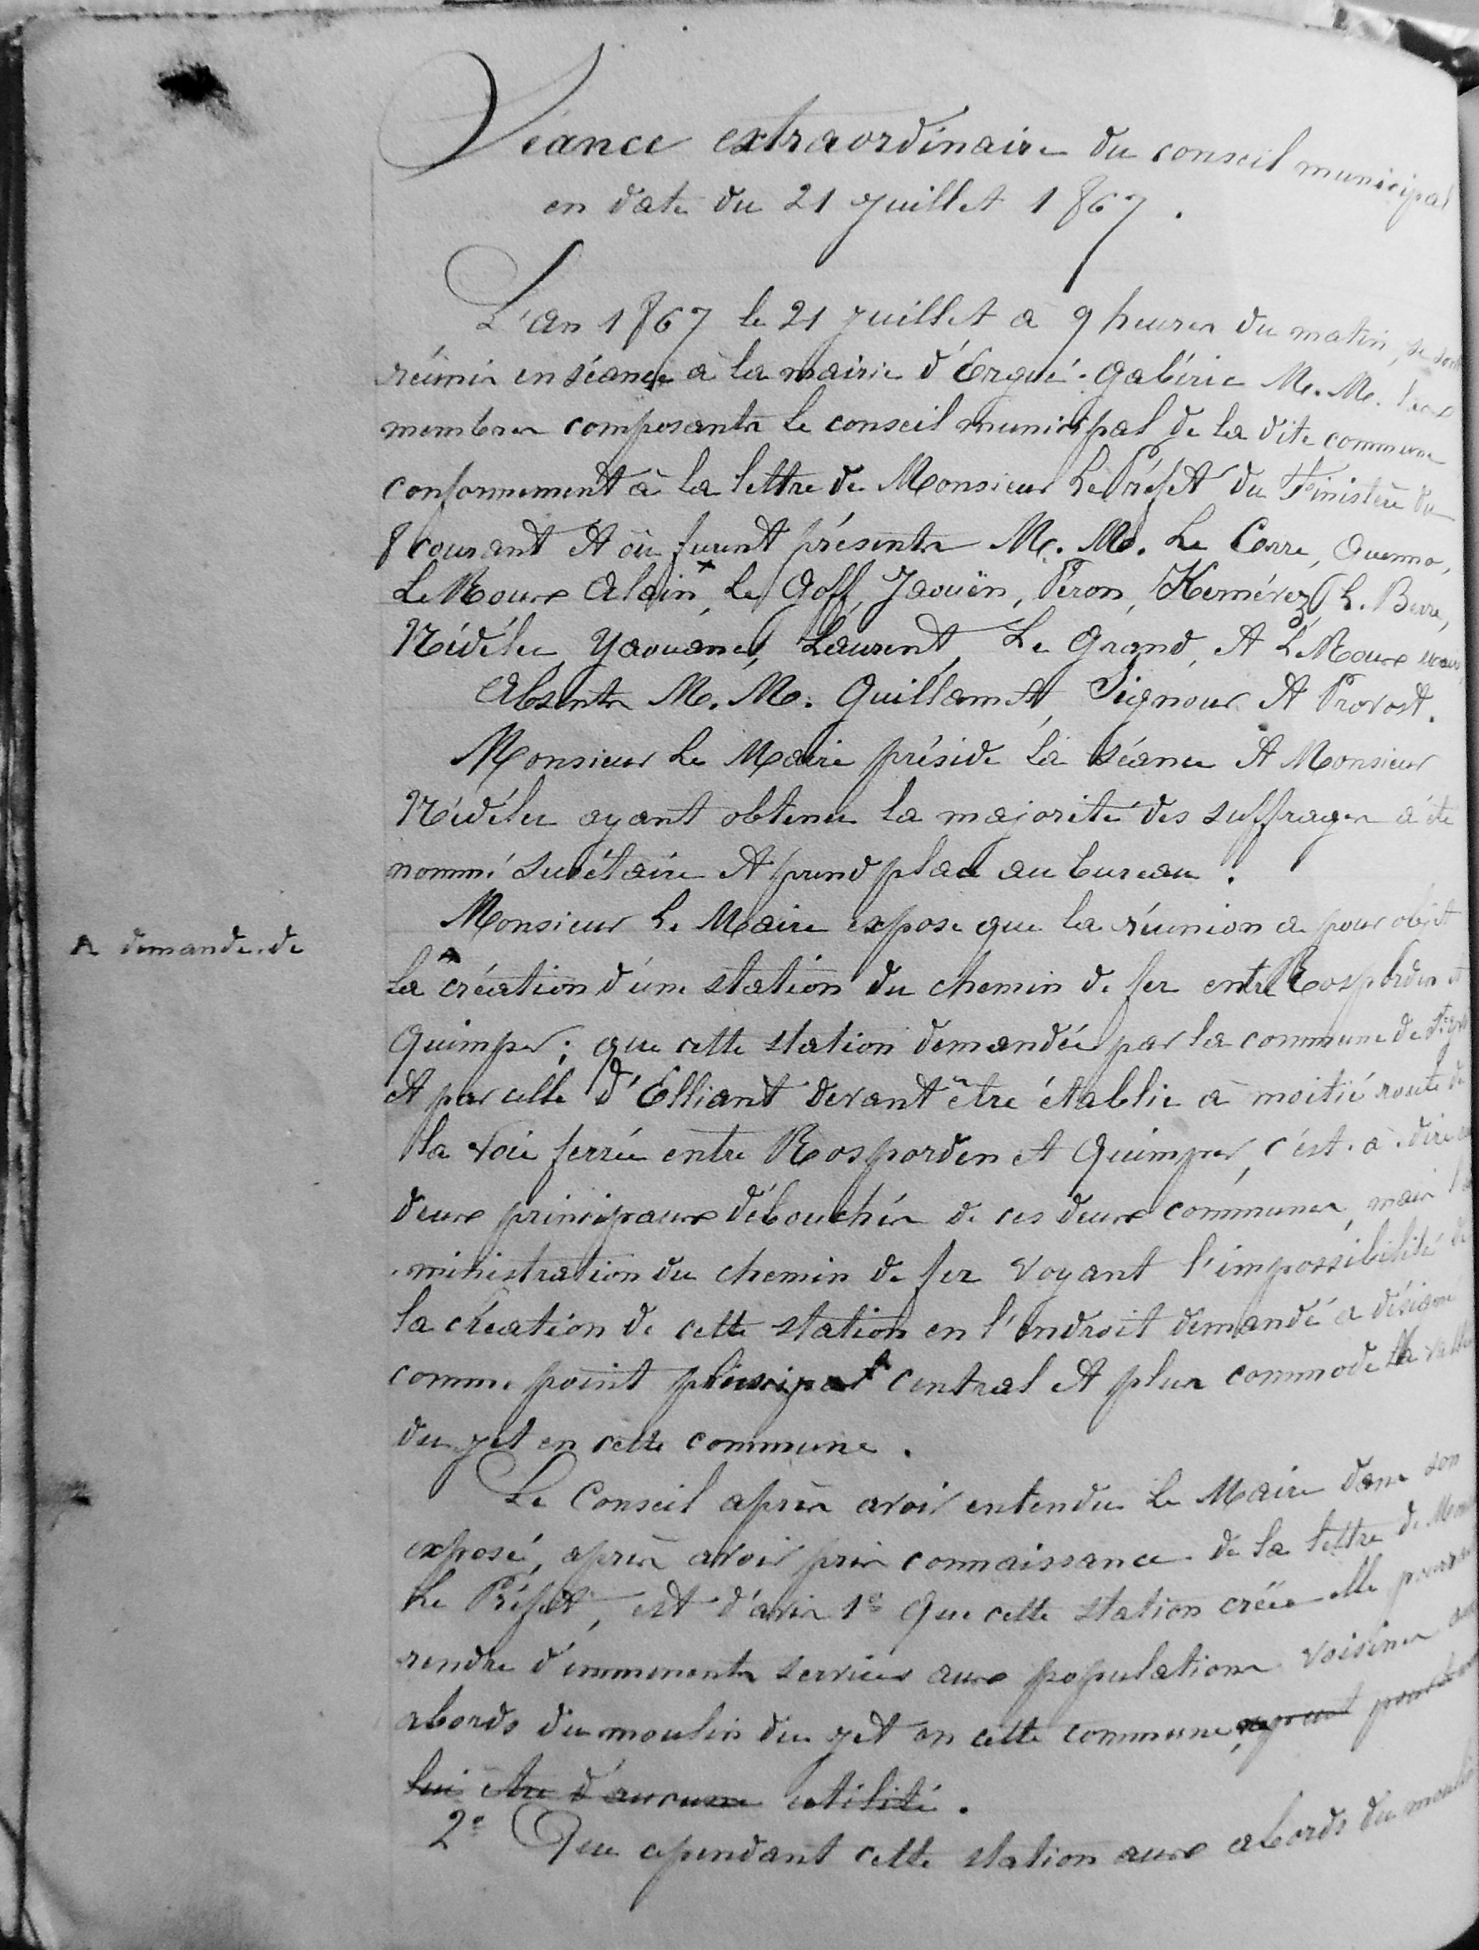 Séance extraordinaire du conseil municipal
en date du 21 juillet 1867.
L'an 1867 le 21 juillet à 9 heures du matin, se sont
réunis en séance à la mairie d'Ergué-Gabéric M. M. les
membres composants le conseil municipal de la dite commune
conformement à la lettre de Monsieur Le Préfet du Finistère du
8 courant et où furent présents M. M. Le Corre,
Le Roux Alain, Le Goff, Jaouën, Péron, Kernévez, Le Berre,
Nédélec, Yaouanc, Laurent, Le Grand, et Le Roux
Absents M. M. Guillamet, Signour et Provost.
Monsieur Le Maire préside la séance et Monsieur
Nédélec ayant obtenu la majorité des suffrages a été
nommé secrétaire et prend place au bureau.
Monsieur Le Maire expose que la réunion a pour objet
A demande de
la création d'une station du chemin de fer entre Rosporden et
Quimper; que cette station demandée par la commune de
et par celle d'Elliant devant être établie à moitié route de
la voie ferrée entre Rosporden et Quimper, c'est-à-dire
deux principaux débouchés de ces deux communes, mais
ministration du chemin de fer voyant l'impossibilité de
la création de cette station en l'endroit demandé a désigné
comme point principal central et plus commode la vallée
du jet en cette commune.
Le Conseil après avoir entendu Le Maire dans son
exposé, après avoir pris connaissance de la lettre de
Le Préfet, est d'avis 1º Que cette station créée elle pourra
rendre d'immenents services aux populations voisines
abords du moulin du jet en cette commune,
lui être d'aucune utilité.
2º Que cependant cette station aux abords du moulin